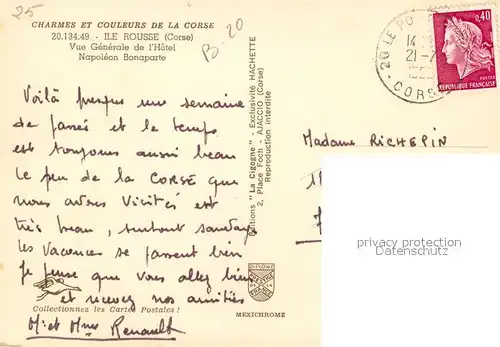 25
B. 20
CHARMES ET COULEURS DE LA CORSE
20.134.49 - ILE ROUSSE (Corse)
Vue Générale de l'Hôtel
Napoléon Bonaparte
Voilà presque une semaine
de passés et le temps
est toujours aussi beau
le peu de la CORSE que
nous avons Visités est
très beau, surtout
les vacances se passent bien
Je pense que Vous allez bien
et recevez nos amitiés
Mr et Mme Renault
Collectionnez les Cartes Postales !
Editions "La Cigogne" - Exclusivité HACHETTE
2, Place Foch - AJACCIO (Corse)
Reproduction interdite
DIPLOME
MEXICHROME
20 LE PO
14
21-7
CORSE
0,40
POSTES
REPUBLIQUE FRANÇAISE
Madame RICHEPIN
11
privacy protection
Datenschutz